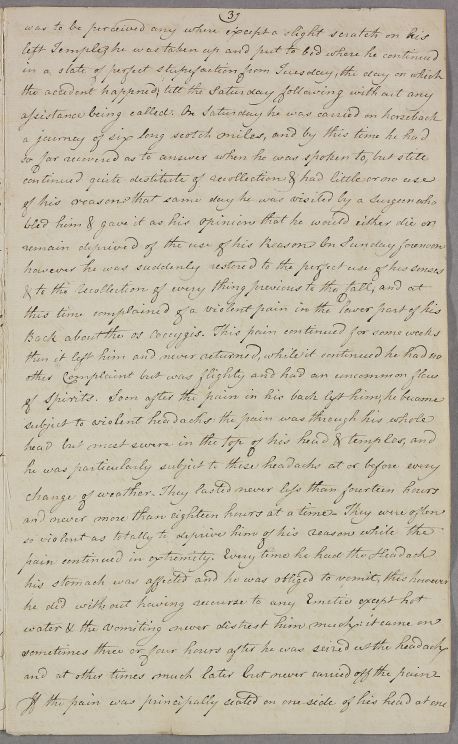 (3)
was to be perceived any where except a slight scratch on his
left Temple; he was taken up and put to bed where he continued
in a state of perfect stupifaction from Tuesday, the day on which
the accident happned, till the Saturday following without any
assistance being called. On Saturday he was carried on horseback
a journey of six long scotch miles, and by this time he had
so far recovered as to answer when he was spoken to, but still
continued quite destitute of recollection & had little or no use
of his reason that same day he was visited by a Surgeon who
bled him & gave it as his opinion that he would either die or
remain deprived of the use of his Reason On Sunday forenoon
however he was suddenly restored to the perfect use of his senses
& to the recollection of every thing previous to the fall, and at
this time complained of a violent pain in the lower part of his
Back about the os coccygis. This pain continued for some weeks
then it left him and never returned, while it continued he had no
other Complaint but was flighty and had an uncommon flow
of Spirits. Soon after the pain in his back left him, he became
subject to violent headachs the pain was through his whole
head but most severe in the top of his head & temples, and
he was particularly subject to these headachs at or before every
change of weather. They lasted never less than fourteen hours
and never more than eighteen hours at a time. They were often
so violent as totally to deprive him of his reason while the
pain continued in extremity. Every time he had the Headach
his stomach was affected and he was obliged to vomit, this however
he did without having recourse to any Emetic except hot
water & the vomiting never distrest him much; it came on
sometimes three or four hours after he was seized wt the headach
and at other times much later but never carried off the pain
If the pain was principally seated on one side of his head at one